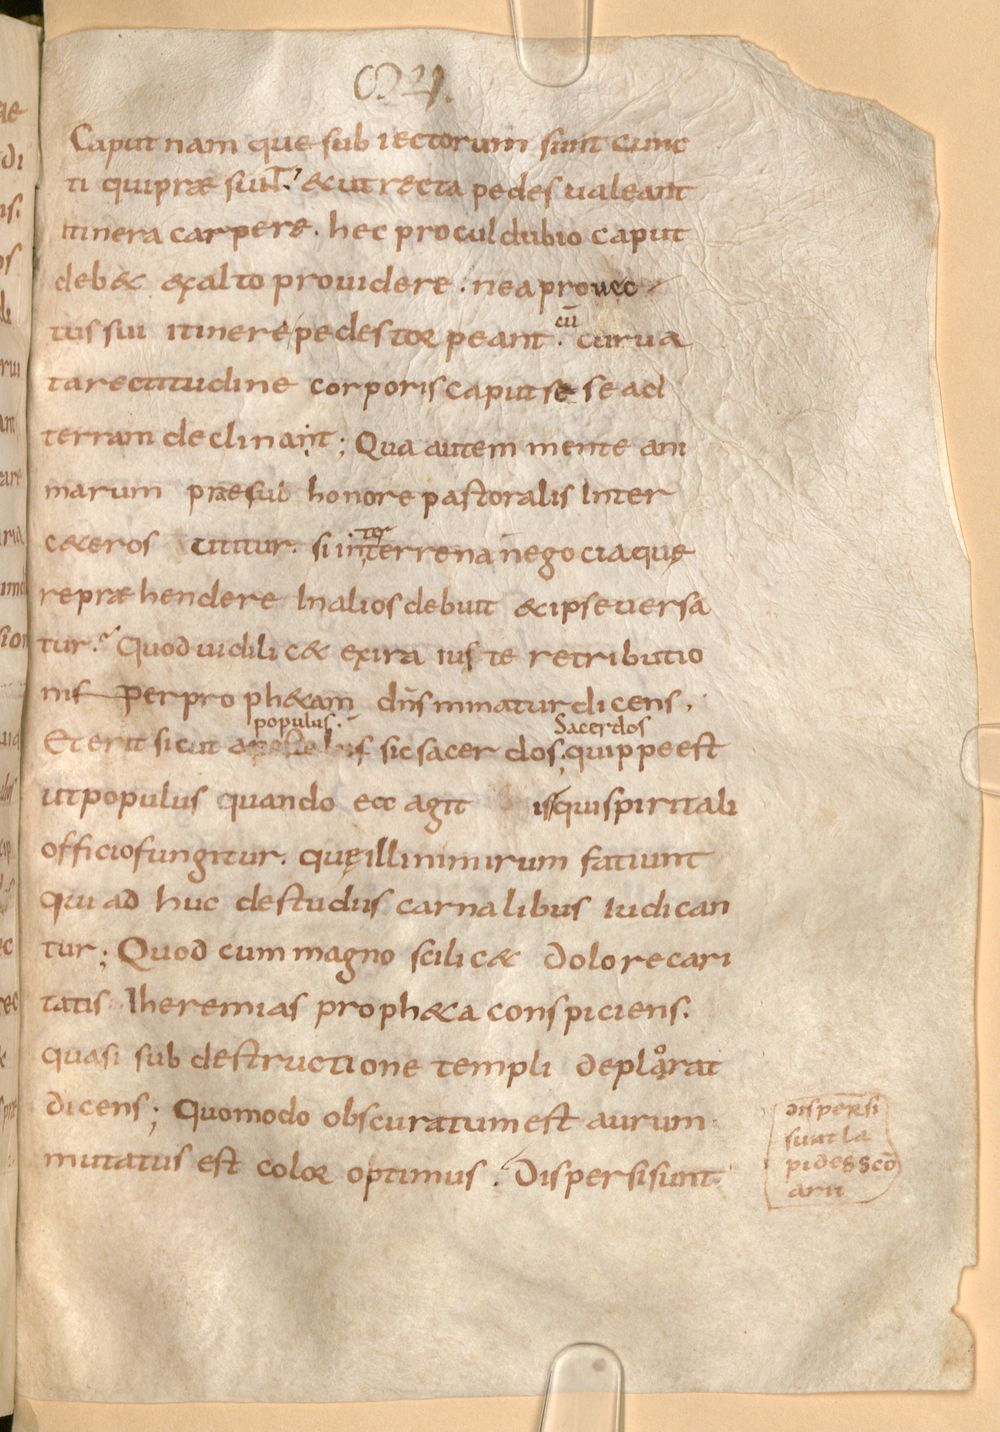 Caput nam que sub iectorum sunt cunc
ti qui præ sunT. & ut recta pedes ualeant
itinera carpere. hec procul dubio caput
deb& ex alto prouidere. ne a prouec
tus sui itinere pedes torpeant. cū curua
ta rectitudine corporis caput se se ad
terram declinant; Qua autem mente ani
marum præsub honore pastoralis Inter
c&eros utitur. si in terrena negocia quę
repræhendere In alios debuit & ipse uersa
tur. Quod uidilic& ex ira iuste retributio
nis per proph&am dn̄s minatur dicens.
populus. Sacerdos
Et erit sicut sic sacerdos; quippe est
ut populus quando ec agit is qui spiritali
officio fungitur. quę illi nimirum fatiunt
qui ad huc de studiis carnalibus iudican
tur; Quod cum magno scilic& dolore cari
tatis Iheremias proph&a conspiciens.
quasi sub destructione templi deplorat
dicens; Quomodo obscuratum est aurum
mutatus est color optimus. Dispersi sunt
dispersi
sunt la
pides scō
arii